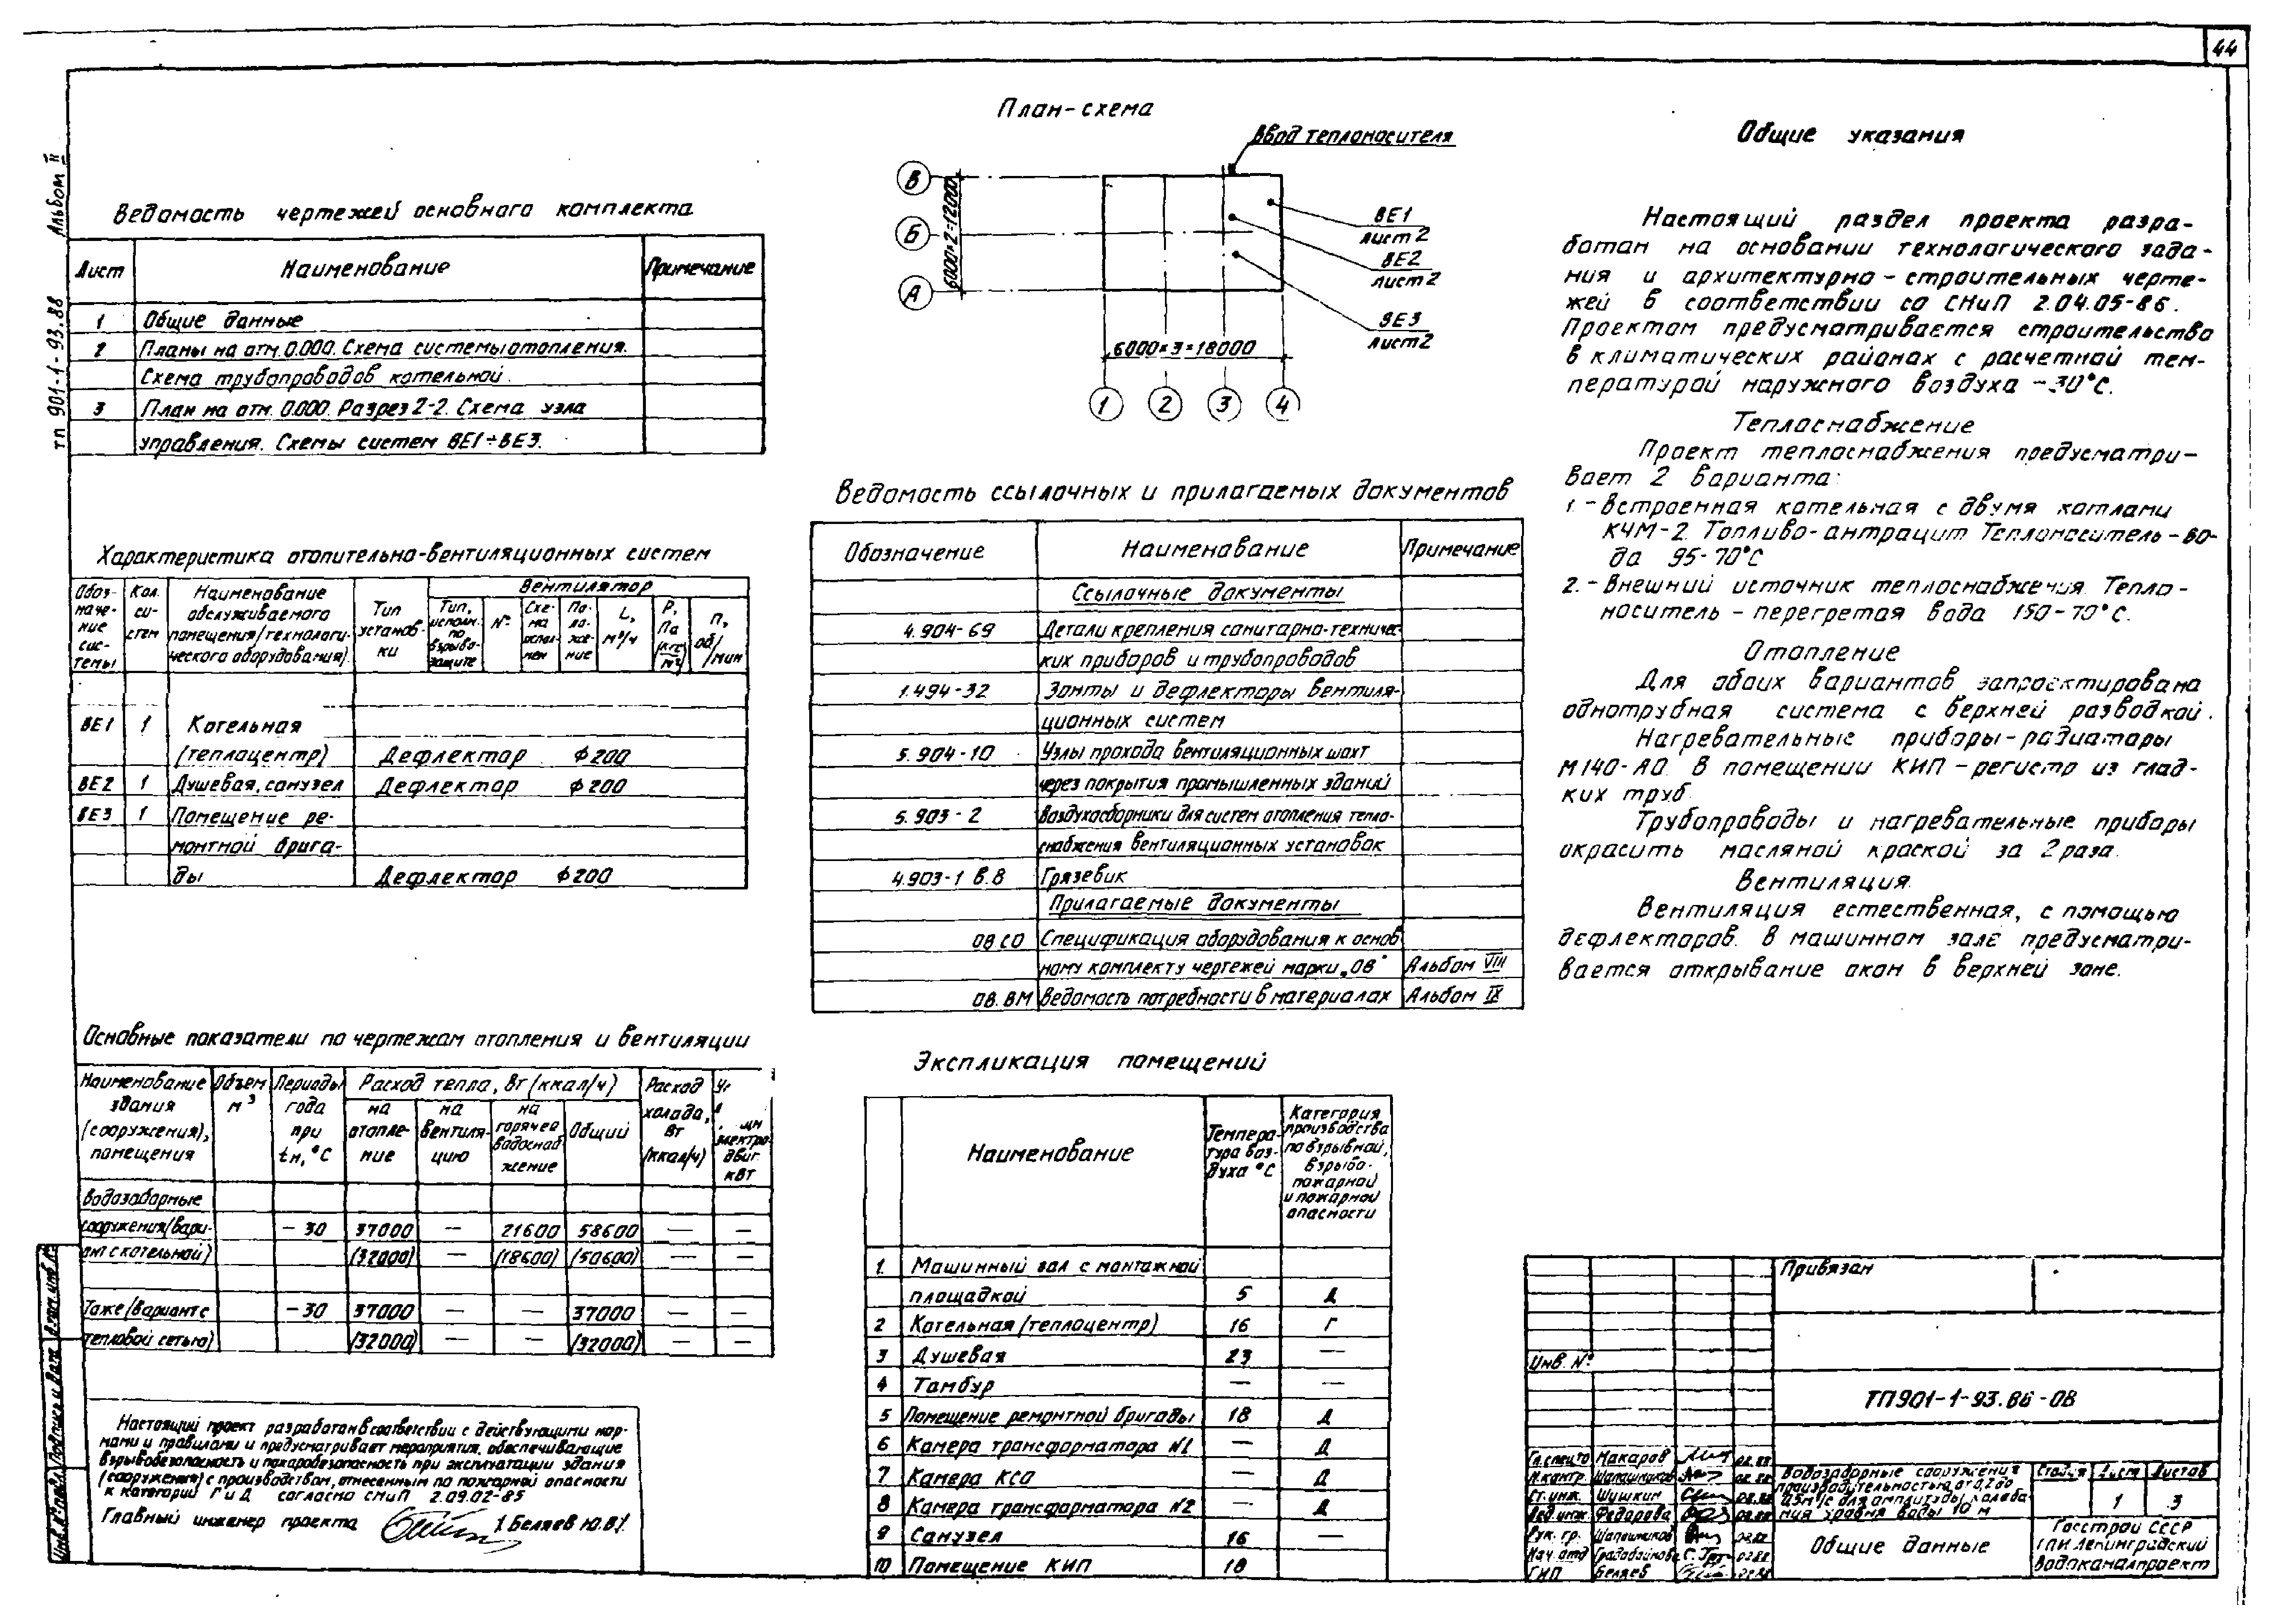 44
Альбом II
тп 901-1-93.88
Ведомость чертежей основного комплекта
Лист Наименование Примечание
1 Общие данные
2 Планы на отм. 0.000. Схема системы отопления.
Схема трубопроводов котельной.
3 План на отм. 0.000. Разрез 2-2. Схема узла
управления. Схемы систем ВЕ1÷ВЕ3.
Характеристика отопительно-вентиляционных систем
Обоз-
наче-
ние
сис-
темы
Кол.
си-
стем
Наименование
обслуживаемого
помещения/технологи-
ческого оборудования).
Тип
установ-
ки
Вентилятор
Тип,
исполн.
по
взрыво-
защите
№
Схе-
ма
испол-
нен
По-
ло-
же-
ние
L,
м³/ч
P,
Па
(кгс/м²)
n,
об/мин
ВЕ1 1 Котельная
(теплоцентр) Дефлектор ф200
ВЕ2 1 Душевая, санузел Дефлектор ф200
ВЕ3 1 Помещение ре-
монтной брига-
ды Дефлектор ф200
Основные показатели по чертежам отопления и вентиляции
Наименование
здания
(сооружения),
помещения
Объем
м³
Периоды
года
при
tн, °С
Расход тепла, Вт (ккал/ч)
на
отопле-
ние
на
вентиля-
цию
на
горячее
водоснаб
жение
Общий
Расход
холода,
Вт
(ккал/ч)
электро-
двиг.
кВт
Водозаборные
сооружения (вари- -30 37000 — 21600 58600 — —
ант с котельной) (32000) — (18600) (50600) — —
Тоже (вариант с -30 37000 — — 37000 — —
тепловой сетью) (32000) — — (32000) — —
Настоящий проект разработан в соответствии с действующими нор-
мами и правилами и предусматривает мероприятия, обеспечивающие
взрывобезопасность и пожаробезопасность при эксплуатации здания
(сооружения) с производством, отнесенным по пожарной опасности
к категории Г и Д согласно СНиП 2.09.02-85
Главный инженер проекта /Беляев Ю.В./
План-схема
Ввод теплоносителя
В
Б
А
6000×2=12000
ВЕ1
лист 2
ВЕ2
лист 2
ВЕ3
лист 2
6000×3=18000
1 2 3 4
Ведомость ссылочных и прилагаемых документов
Обозначение Наименование Примечание
Ссылочные документы
4.904-69 Детали крепления санитарно-техничес-
ких приборов и трубопроводов
1.494-32 Зонты и дефлекторы вентиля-
ционных систем
5.904-10 Узлы прохода вентиляционных шахт
через покрытия промышленных зданий
5.903-2 Воздухосборники для систем отопления тепло-
снабжения вентиляционных установок
4.903-1 в.8 Грязевик
Прилагаемые документы
ОВ.СО Спецификация оборудования к основ
ному комплекту чертежей марки „ОВ" Альбом VIII
ОВ.ВМ Ведомость потребности в материалах Альбом IX
Экспликация помещений
Наименование
Темпера-
тура воз-
духа °С
Категория
производства
по взрывной,
взрыво-
пожарной
и пожарной
опасности
1. Машинный зал с монтажной
площадкой 5 Д
2 Котельная (теплоцентр) 16 Г
3 Душевая 23 —
4 Тамбур — —
5 Помещение ремонтной бригады 18 Д
6 Камера трансформатора №1 — Д
7 Камера КСО — Д
8 Камера трансформатора №2 — Д
9 Санузел 16 —
10 Помещение КИП 18
Общие указания
Настоящий раздел проекта разра-
ботан на основании технологического зада-
ния и архитектурно-строительных черте-
жей в соответствии со СНиП 2.04.05-86.
Проектом предусматривается строительство
в климатических районах с расчетной тем-
пературой наружного воздуха -30°С.
Теплоснабжение
Проект теплоснабжения предусматри-
вает 2 варианта:
1.-Встроенная котельная с двумя котлами
КЧМ-2. Топливо-антрацит Теплоноситель-во-
да 95-70°С
2.-Внешний источник теплоснабжения. Тепло-
носитель - перегретая вода 150-70°С.
Отопление
Для обоих вариантов запроектирована
однотрубная система с верхней разводкой.
Нагревательные приборы-радиаторы
М140-АО. В помещении КИП-регистр из глад-
ких труб.
Трубопроводы и нагревательные приборы
окрасить масляной краской за 2 раза.
Вентиляция.
Вентиляция естественная, с помощью
дефлекторов. В машинном зале предусматри-
вается открывание окон в верхней зоне.
Привязан
Инв. №
ТП901-1-93.88-ОВ
Гл.спец.то Макаров 02.88
Н.контр. Шапашников 02.88
Ст.инж. Шушкин 02.88
Вед.инж. Федорова 02.88
Рук. гр. Шапашников 02.88
Нач.отд Градобойнова 02.88
ГИП Беляев 02.88
Водозаборные сооружения
производительностью от 0,2 до
0,5м³/с для амплитуды колеба-
ния уровня воды 10 м
Стадия Лист Листов
1 3
Общие данные
Госстрой СССР
ГПИ Ленинградский
Водоканалпроект
Инв.№подл. Подпись и дата Взам.инв.№